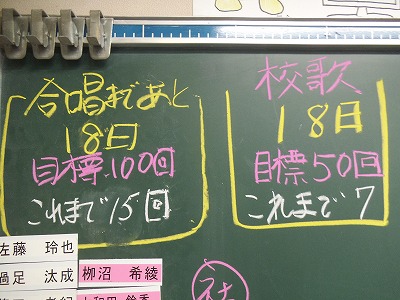 合唱まであと
18日
目標100回
これまで15回
校歌
18日
目標50回
これまで7
佐藤 玲也
過足 汰成
柳沼 希綾